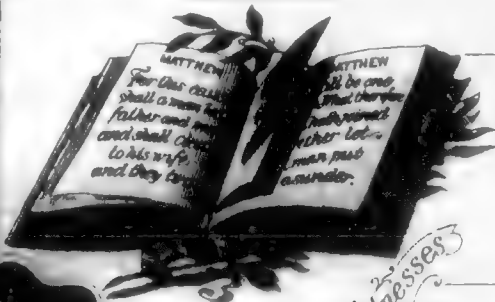 MATTHEW
For this cause
shall a man
father and
and shall
to his wife,
and they
MATTHEW
be one
What therefore
hath joined
let
man put
asunder.
nesses